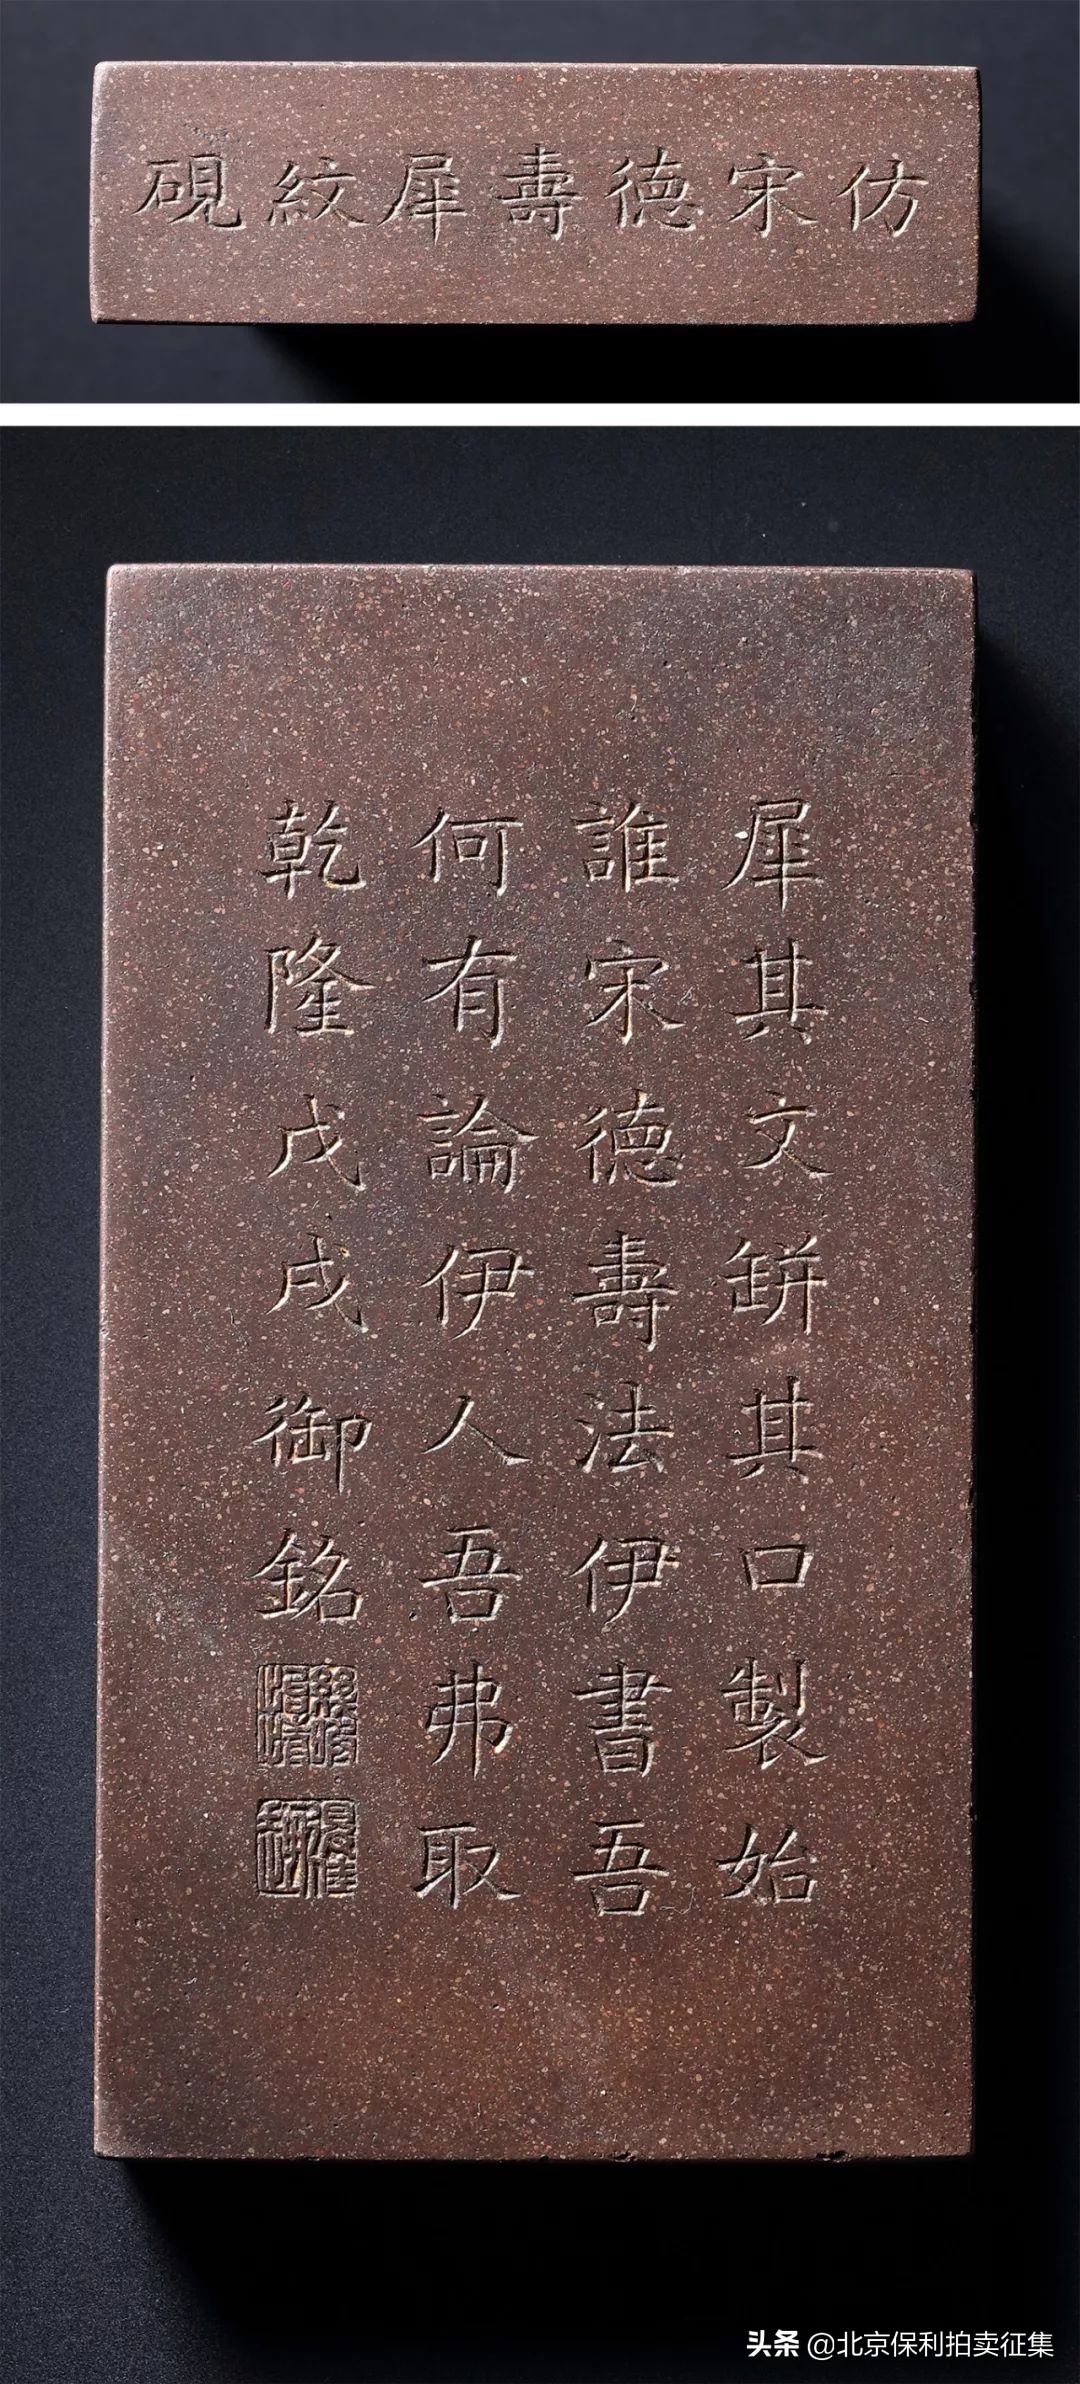 仿宋德壽犀紋硯
犀其文缾其口製始
誰宋德壽法伊書吾
何有論伊人吾弗取
乾隆戊戌御銘
幾暇怡情
得佳趣
头条 @北京保利拍卖征集